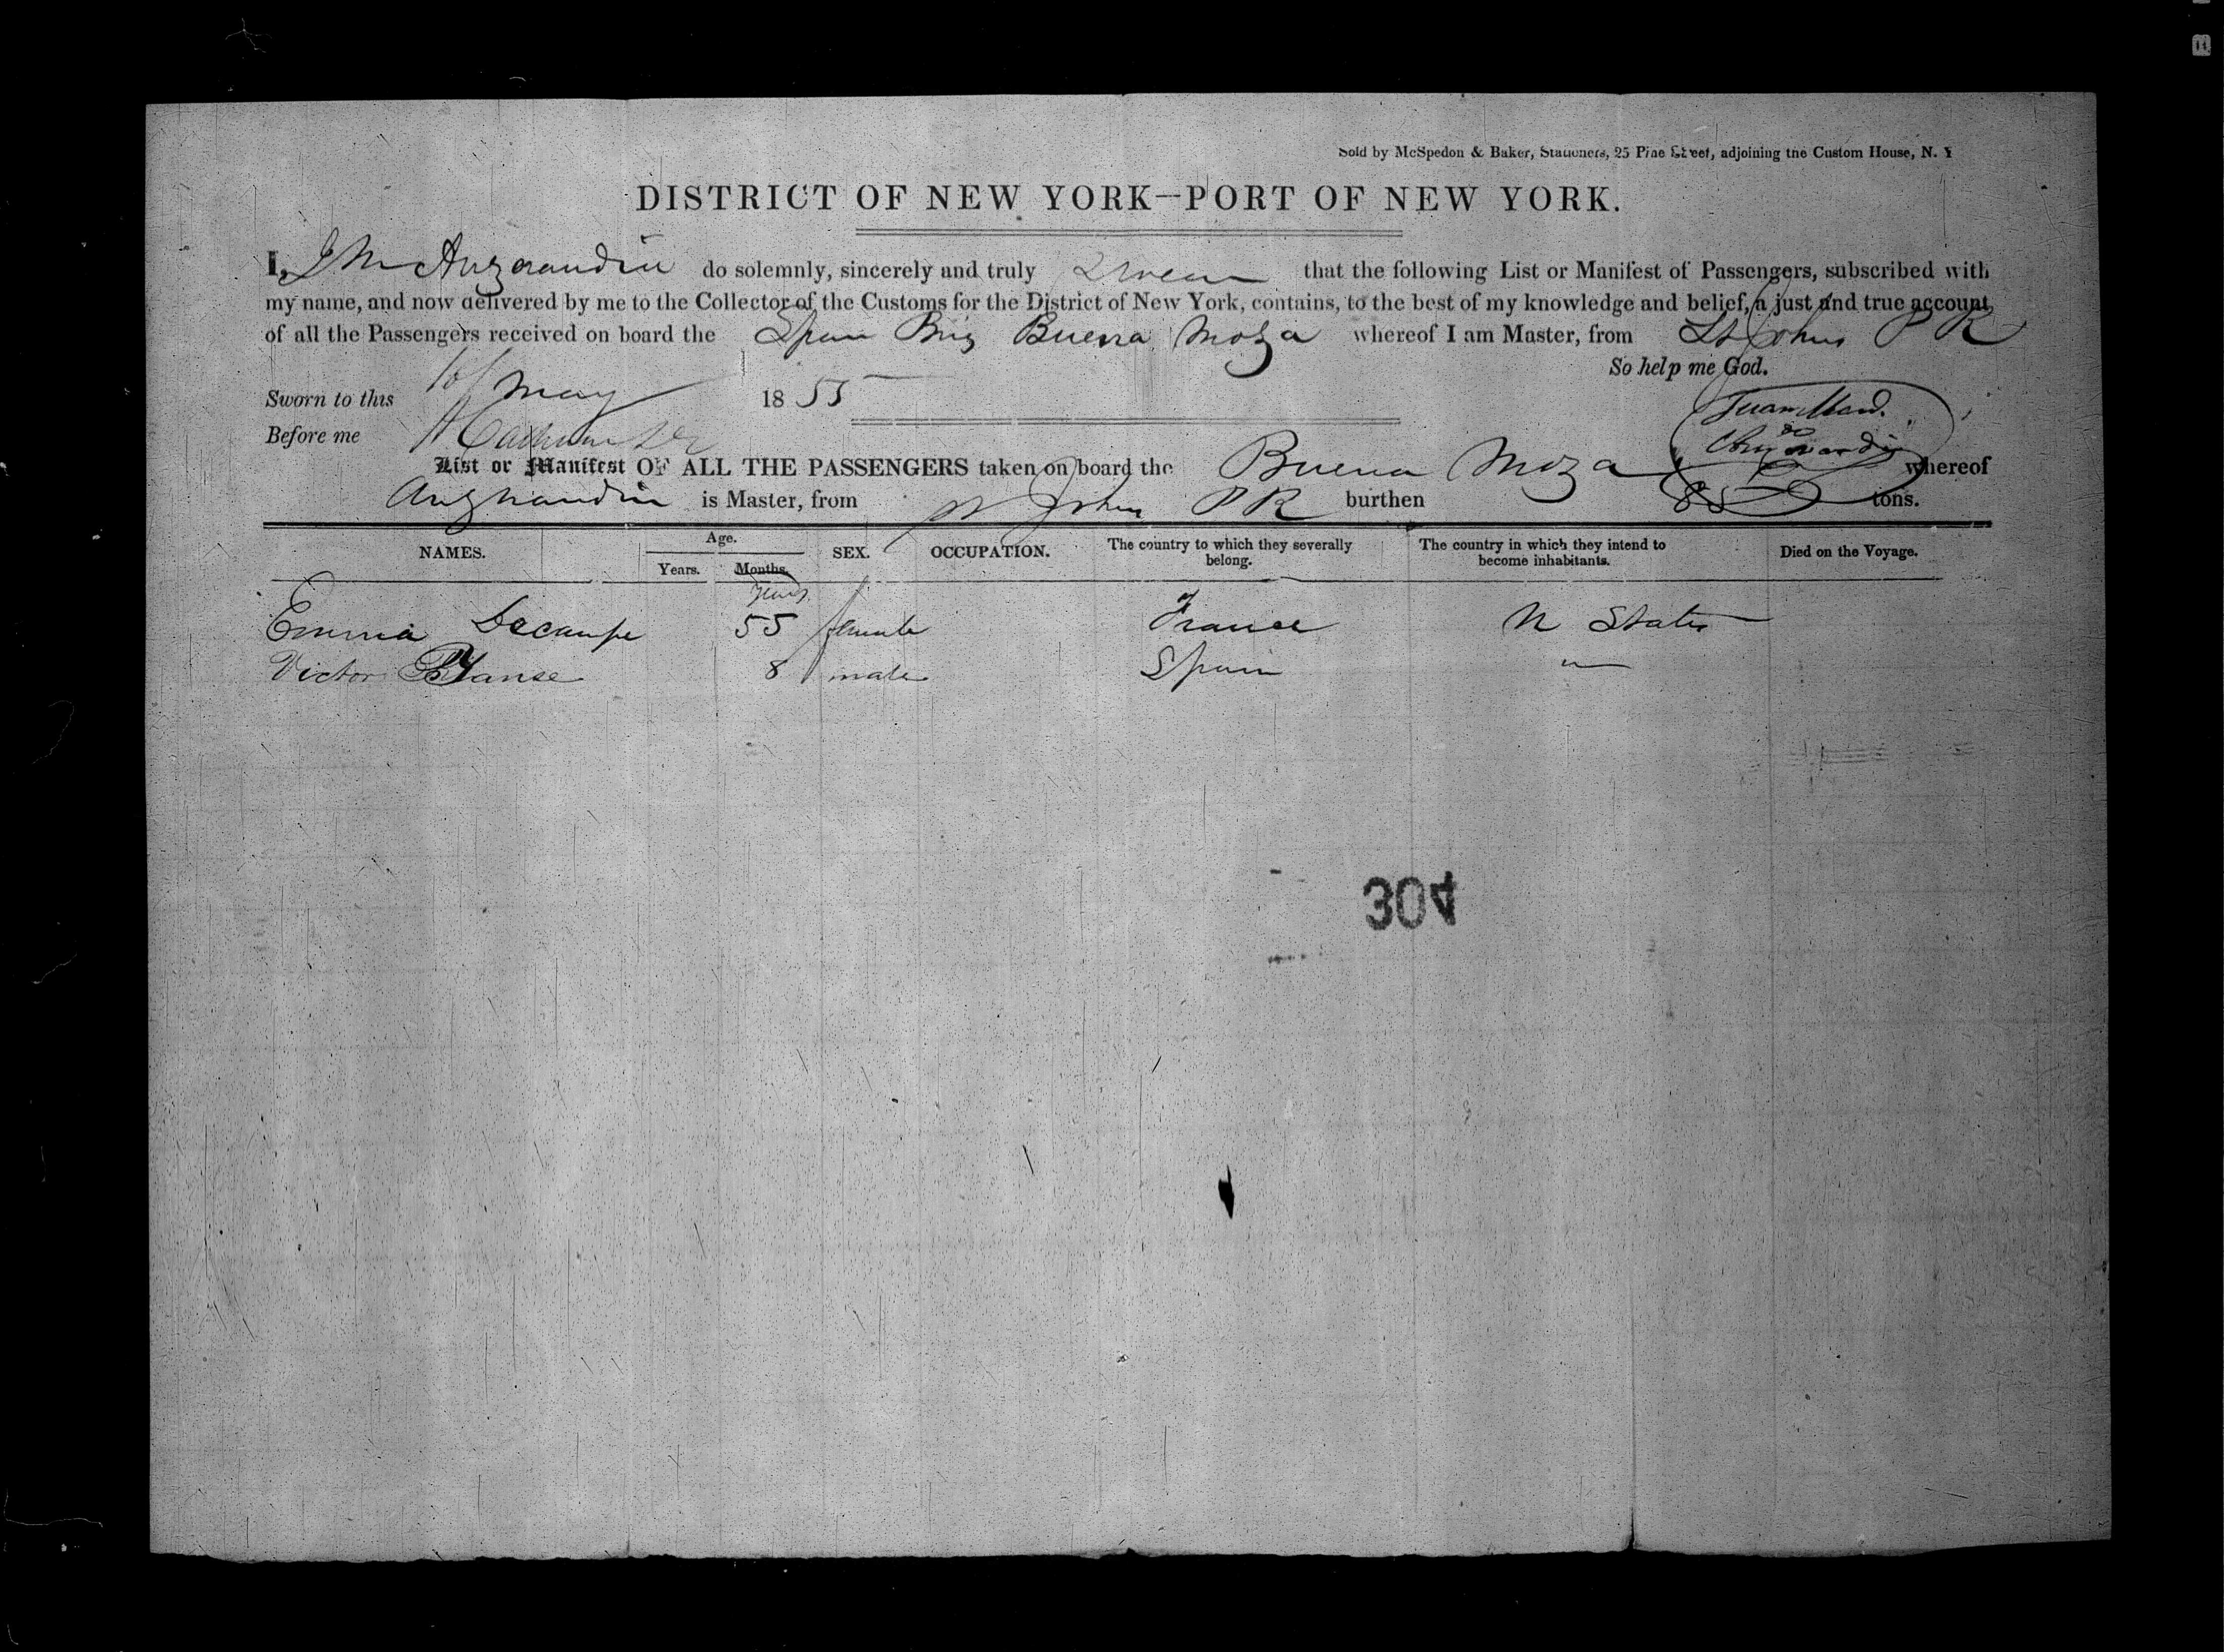 Sold by McSpedon & Baker, Stationers, 25 Pine Street, adjoining the Custom House, N. Y
DISTRICT OF NEW YORK—PORT OF NEW YORK.
I, J M do solemnly, sincerely and truly Swear that the following List or Manifest of Passengers, subscribed with
my name, and now delivered by me to the Collector of the Customs for the District of New York, contains, to the best of my knowledge and belief, a just and true account
of all the Passengers received on board the Span Brig Buena Moza whereof I am Master, from St Johns P R
So help me God.
Sworn to this 16 May 1855
Before me
List or Manifest OF ALL THE PASSENGERS taken on board the Buena Moza whereof
is Master, from St Johns P R burthen 85 tons.
NAMES. Age. SEX. OCCUPATION. The country to which they severally belong. The country in which they intend to become inhabitants. Died on the Voyage.
Years. Months.
years
Emma Decampe 55 female France U States
Victor Blanse 8 male Spain "
304